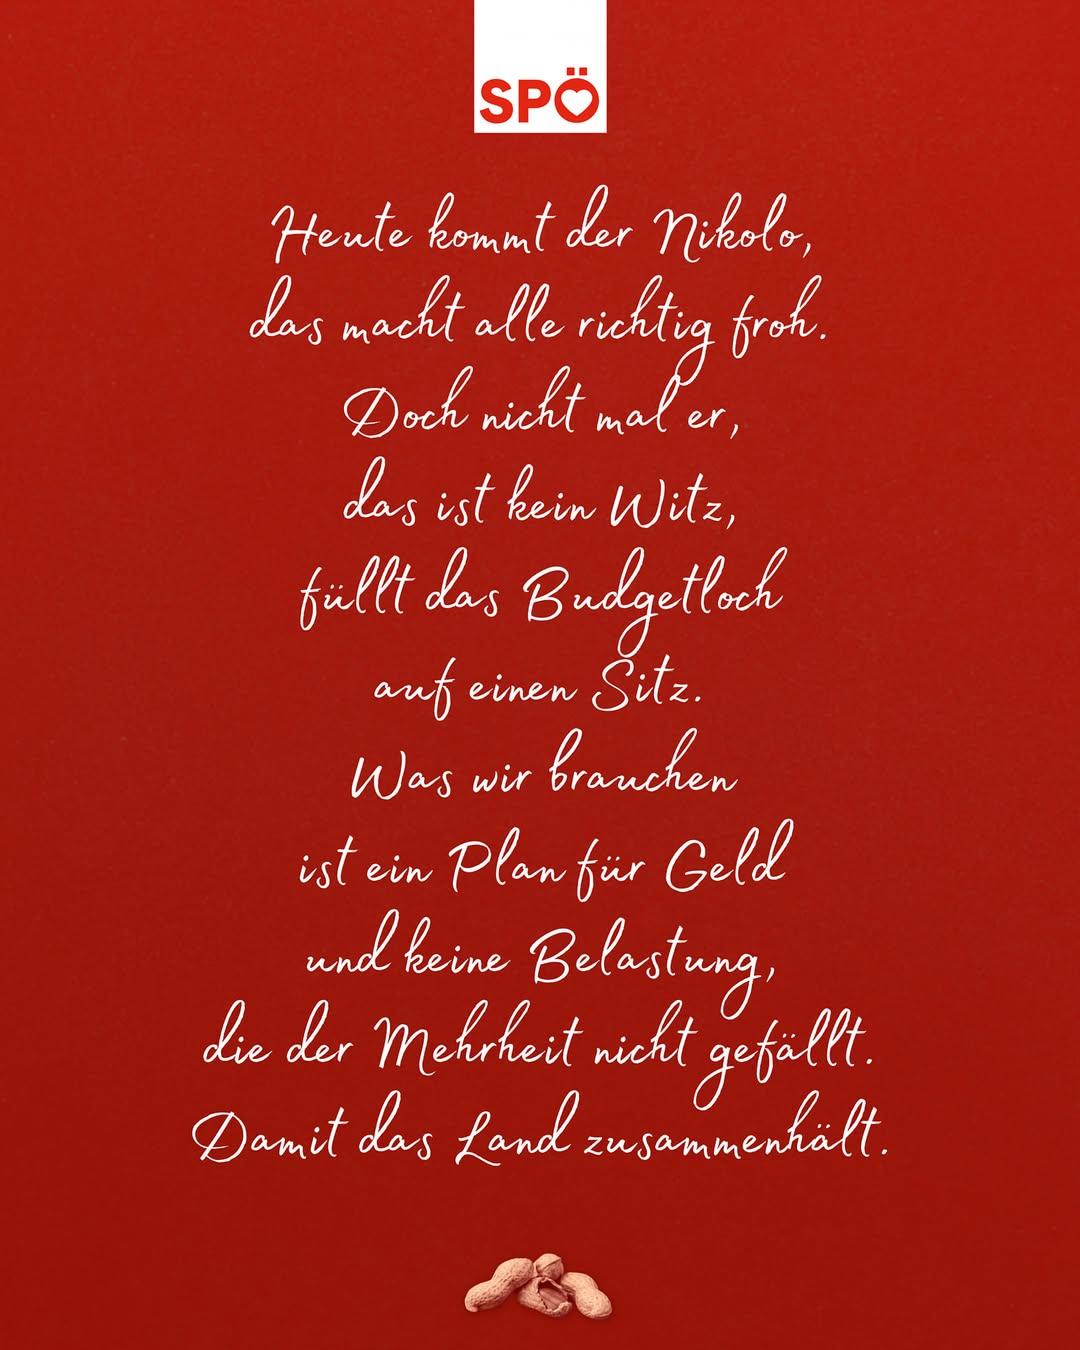 SPÖ
Heute kommt der Nikolo,
das macht alle richtig froh.
Doch nicht mal er,
das ist kein Witz,
füllt das Budgetloch
auf einen Sitz.
Was wir brauchen
ist ein Plan für Geld
und keine Belastung,
die der Mehrheit nicht gefällt.
Damit das Land zusammenhält.